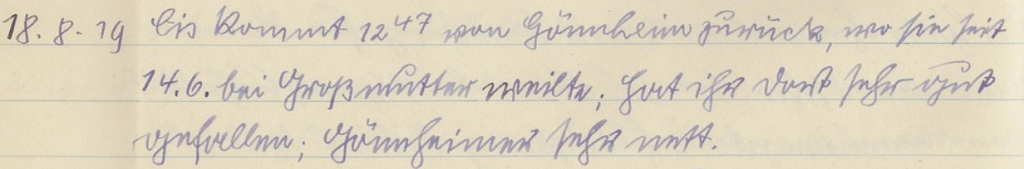 18.8.19 Lis kommt 12⁴⁷ von Gönnheim zurück, wo sie seit
14.6. bei Großmutter weilte; hat ihr dort sehr gut
gefallen; Gönnheimer sehr nett.